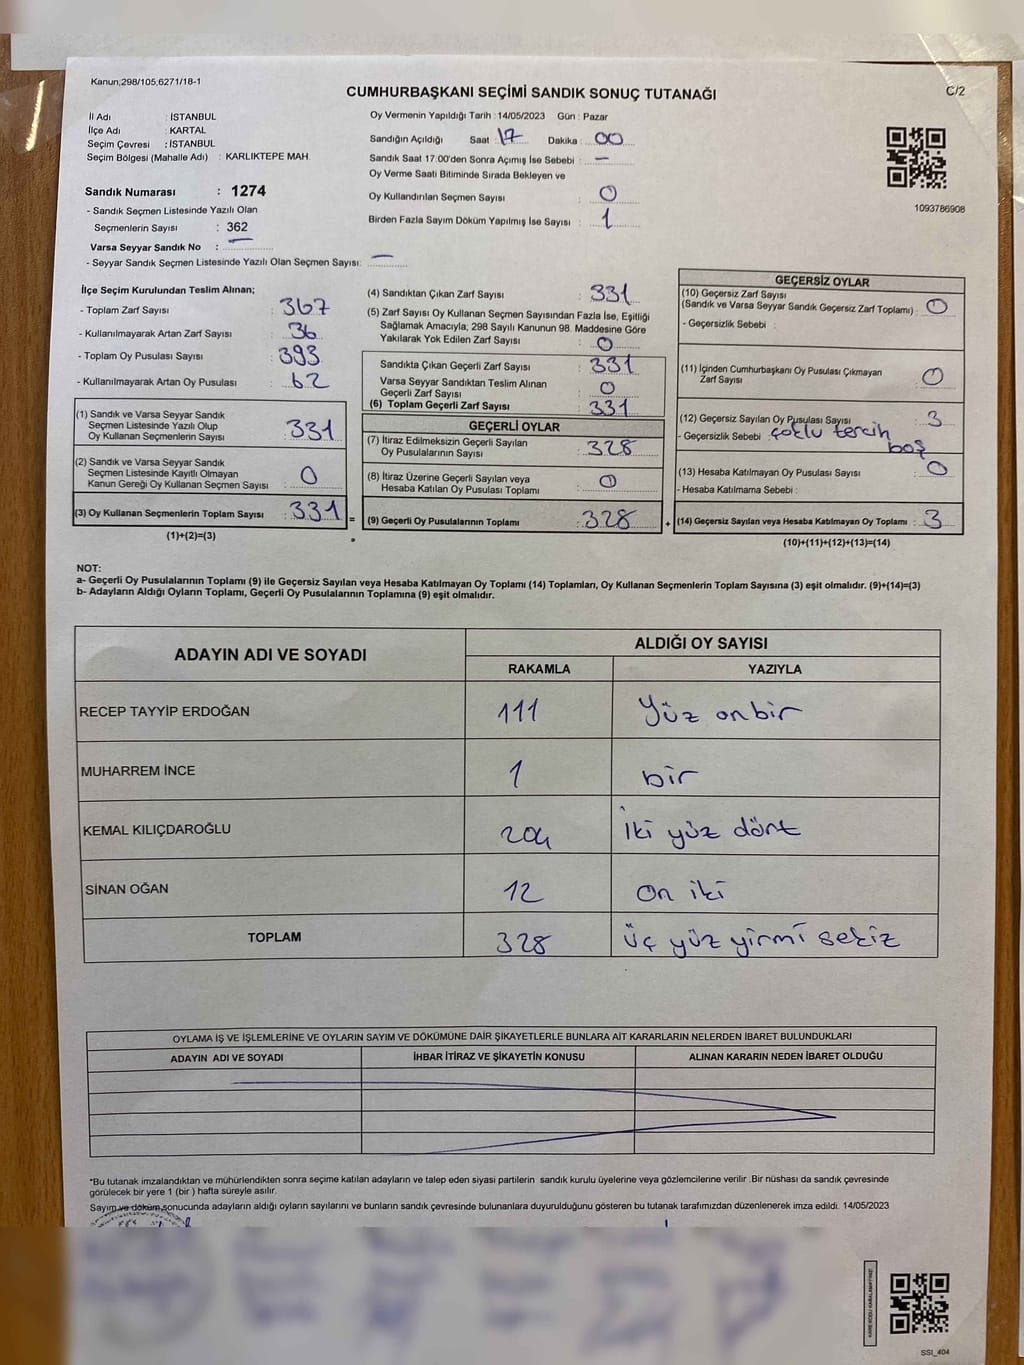 Kanun;298/105;6271/18-1
CUMHURBAŞKANI SEÇİMİ SANDIK SONUÇ TUTANAĞI
C/2
İl Adı : İSTANBUL
İlçe Adı : KARTAL
Seçim Çevresi : İSTANBUL
Seçim Bölgesi (Mahalle Adı) : KARLIKTEPE MAH.
Sandık Numarası : 1274
- Sandık Seçmen Listesinde Yazılı Olan
Seçmenlerin Sayısı : 362
Varsa Seyyar Sandık No : —
- Seyyar Sandık Seçmen Listesinde Yazılı Olan Seçmen Sayısı: —
Oy Vermenin Yapıldığı Tarih : 14/05/2023 Gün : Pazar
Sandığın Açıldığı Saat : 17 Dakika : 00
Sandık Saat 17:00'den Sonra Açımış İse Sebebi : —
Oy Verme Saati Bitiminde Sırada Bekleyen ve
Oy Kullandırılan Seçmen Sayısı : 0
Birden Fazla Sayım Döküm Yapılmış İse Sayısı : 1
1093786908
İlçe Seçim Kurulundan Teslim Alınan;
- Toplam Zarf Sayısı : 367
- Kullanılmayarak Artan Zarf Sayısı : 36
- Toplam Oy Pusulası Sayısı : 393
- Kullanılmayarak Artan Oy Pusulası : 62
(1) Sandık ve Varsa Seyyar Sandık
Seçmen Listesinde Yazılı Olup
Oy Kullanan Seçmenlerin Sayısı : 331
(2) Sandık ve Varsa Seyyar Sandık
Seçmen Listesinde Kayıtlı Olmayan
Kanun Gereği Oy Kullanan Seçmen Sayısı : 0
(3) Oy Kullanan Seçmenlerin Toplam Sayısı : 331
(1)+(2)=(3)
=
(4) Sandıktan Çıkan Zarf Sayısı : 331
(5) Zarf Sayısı Oy Kullanan Seçmen Sayısından Fazla İse, Eşitliği
Sağlamak Amacıyla; 298 Sayılı Kanunun 98. Maddesine Göre
Yakılarak Yok Edilen Zarf Sayısı : 0
Sandıkta Çıkan Geçerli Zarf Sayısı : 331
Varsa Seyyar Sandıktan Teslim Alınan
Geçerli Zarf Sayısı : 0
(6) Toplam Geçerli Zarf Sayısı : 331
GEÇERLİ OYLAR
(7) İtiraz Edilmeksizin Geçerli Sayılan
Oy Pusulalarının Sayısı : 328
(8) İtiraz Üzerine Geçerli Sayılan veya
Hesaba Katılan Oy Pusulası Toplamı : 0
(9) Geçerli Oy Pusulalarının Toplamı : 328
+
GEÇERSİZ OYLAR
(10) Geçersiz Zarf Sayısı
(Sandık ve Varsa Seyyar Sandık Geçersiz Zarf Toplamı) : 0
- Geçersizlik Sebebi :
(11) İçinden Cumhurbaşkanı Oy Pusulası Çıkmayan
Zarf Sayısı : 0
(12) Geçersiz Sayılan Oy Pusulası Sayısı : 3
- Geçersizlik Sebebi : çoklu tercih
boş
(13) Hesaba Katılmayan Oy Pusulası Sayısı : 0
- Hesaba Katılmama Sebebi :
(14) Geçersiz Sayılan veya Hesaba Katılmayan Oy Toplamı : 3
(10)+(11)+(12)+(13)=(14)
NOT:
a- Geçerli Oy Pusulalarının Toplamı (9) ile Geçersiz Sayılan veya Hesaba Katılmayan Oy Toplamı (14) Toplamları, Oy Kullanan Seçmenlerin Toplam Sayısına (3) eşit olmalıdır. (9)+(14)=(3)
b- Adayların Aldığı Oyların Toplamı, Geçerli Oy Pusulalarının Toplamına (9) eşit olmalıdır.
ADAYIN ADI VE SOYADI
ALDIĞI OY SAYISI
RAKAMLA YAZIYLA
RECEP TAYYİP ERDOĞAN 111 Yüz onbir
MUHARREM İNCE 1 bir
KEMAL KILIÇDAROĞLU 204 İki yüz dört
SİNAN OĞAN 12 on iki
TOPLAM 328 üç yüz yirmi sekiz
OYLAMA İŞ VE İŞLEMLERİNE VE OYLARIN SAYIM VE DÖKÜMÜNE DAİR ŞİKAYETLERLE BUNLARA AİT KARARLARIN NELERDEN İBARET BULUNDUKLARI
ADAYIN ADI VE SOYADI İHBAR İTİRAZ VE ŞİKAYETİN KONUSU ALINAN KARARIN NEDEN İBARET OLDUĞU
*Bu tutanak imzalandıktan ve mühürlendikten sonra seçime katılan adayların ve talep eden siyasi partilerin sandık kurulu üyelerine veya gözlemcilerine verilir .Bir nüshası da sandık çevresinde
görülecek bir yere 1 (bir ) hafta süreyle asılır.
Sayım ve döküm sonucunda adayların aldığı oyların sayılarını ve bunların sandık çevresinde bulunanlara duyurulduğunu gösteren bu tutanak tarafımızdan düzenlenerek imza edildi. 14/05/2023
SSI_404